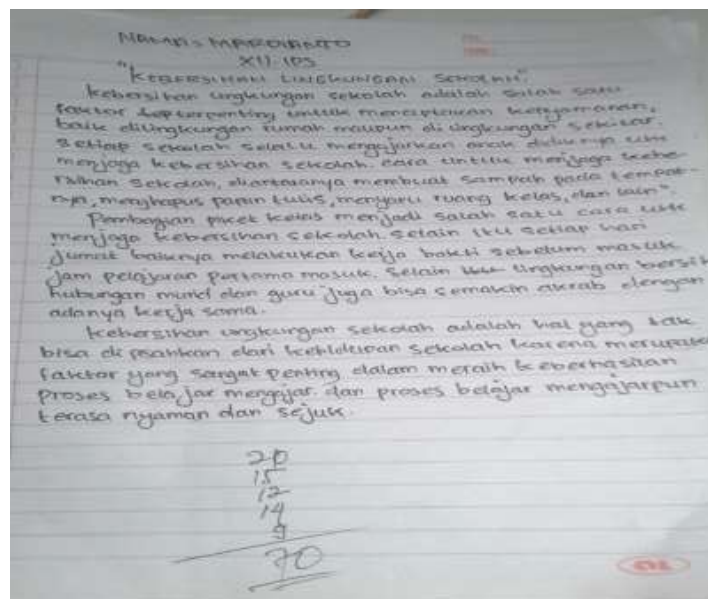 NAMA : MARDIANTO
XII IPS
"KEBERSIHAN LINGKUNGAN SEKOLAH".
Kebersihan lingkungan sekolah adalah salah satu
faktor terpenting untuk menciptakan kenyamanan,
baik dilingkungan rumah maupun di lingkungan sekitar.
Setiap sekolah selalu mengajarkan anak didiknya utk
menjaga kebersihan sekolah. cara untuk menjaga kebe-
rsihan sekolah, diantaranya membuat sampah pada tempat-
nya, menghapus papan tulis, menyapu ruang kelas, dan lain".
Pembagian piket kelas menjadi salah satu cara utk
menjaga kebersihan sekolah. selain itu setiap hari
Jumat baiknya melakukan kerja bakti sebelum masuk
jam pelajaran pertama masuk. Selain lingkungan bersih
hubungan murid dan guru juga bisa semakin akrab dengan
adanya kerja sama.
Kebersihan lingkungan sekolah adalah hal yang tak
bisa di pisahkan dari kehidupan sekolah karena merupakan
faktor yang sangat penting dalam meraih keberhasilan
proses belajar mengajar. dan proses belajar mengajarpun
terasa nyaman dan sejuk.
20
15
12
14
9
70